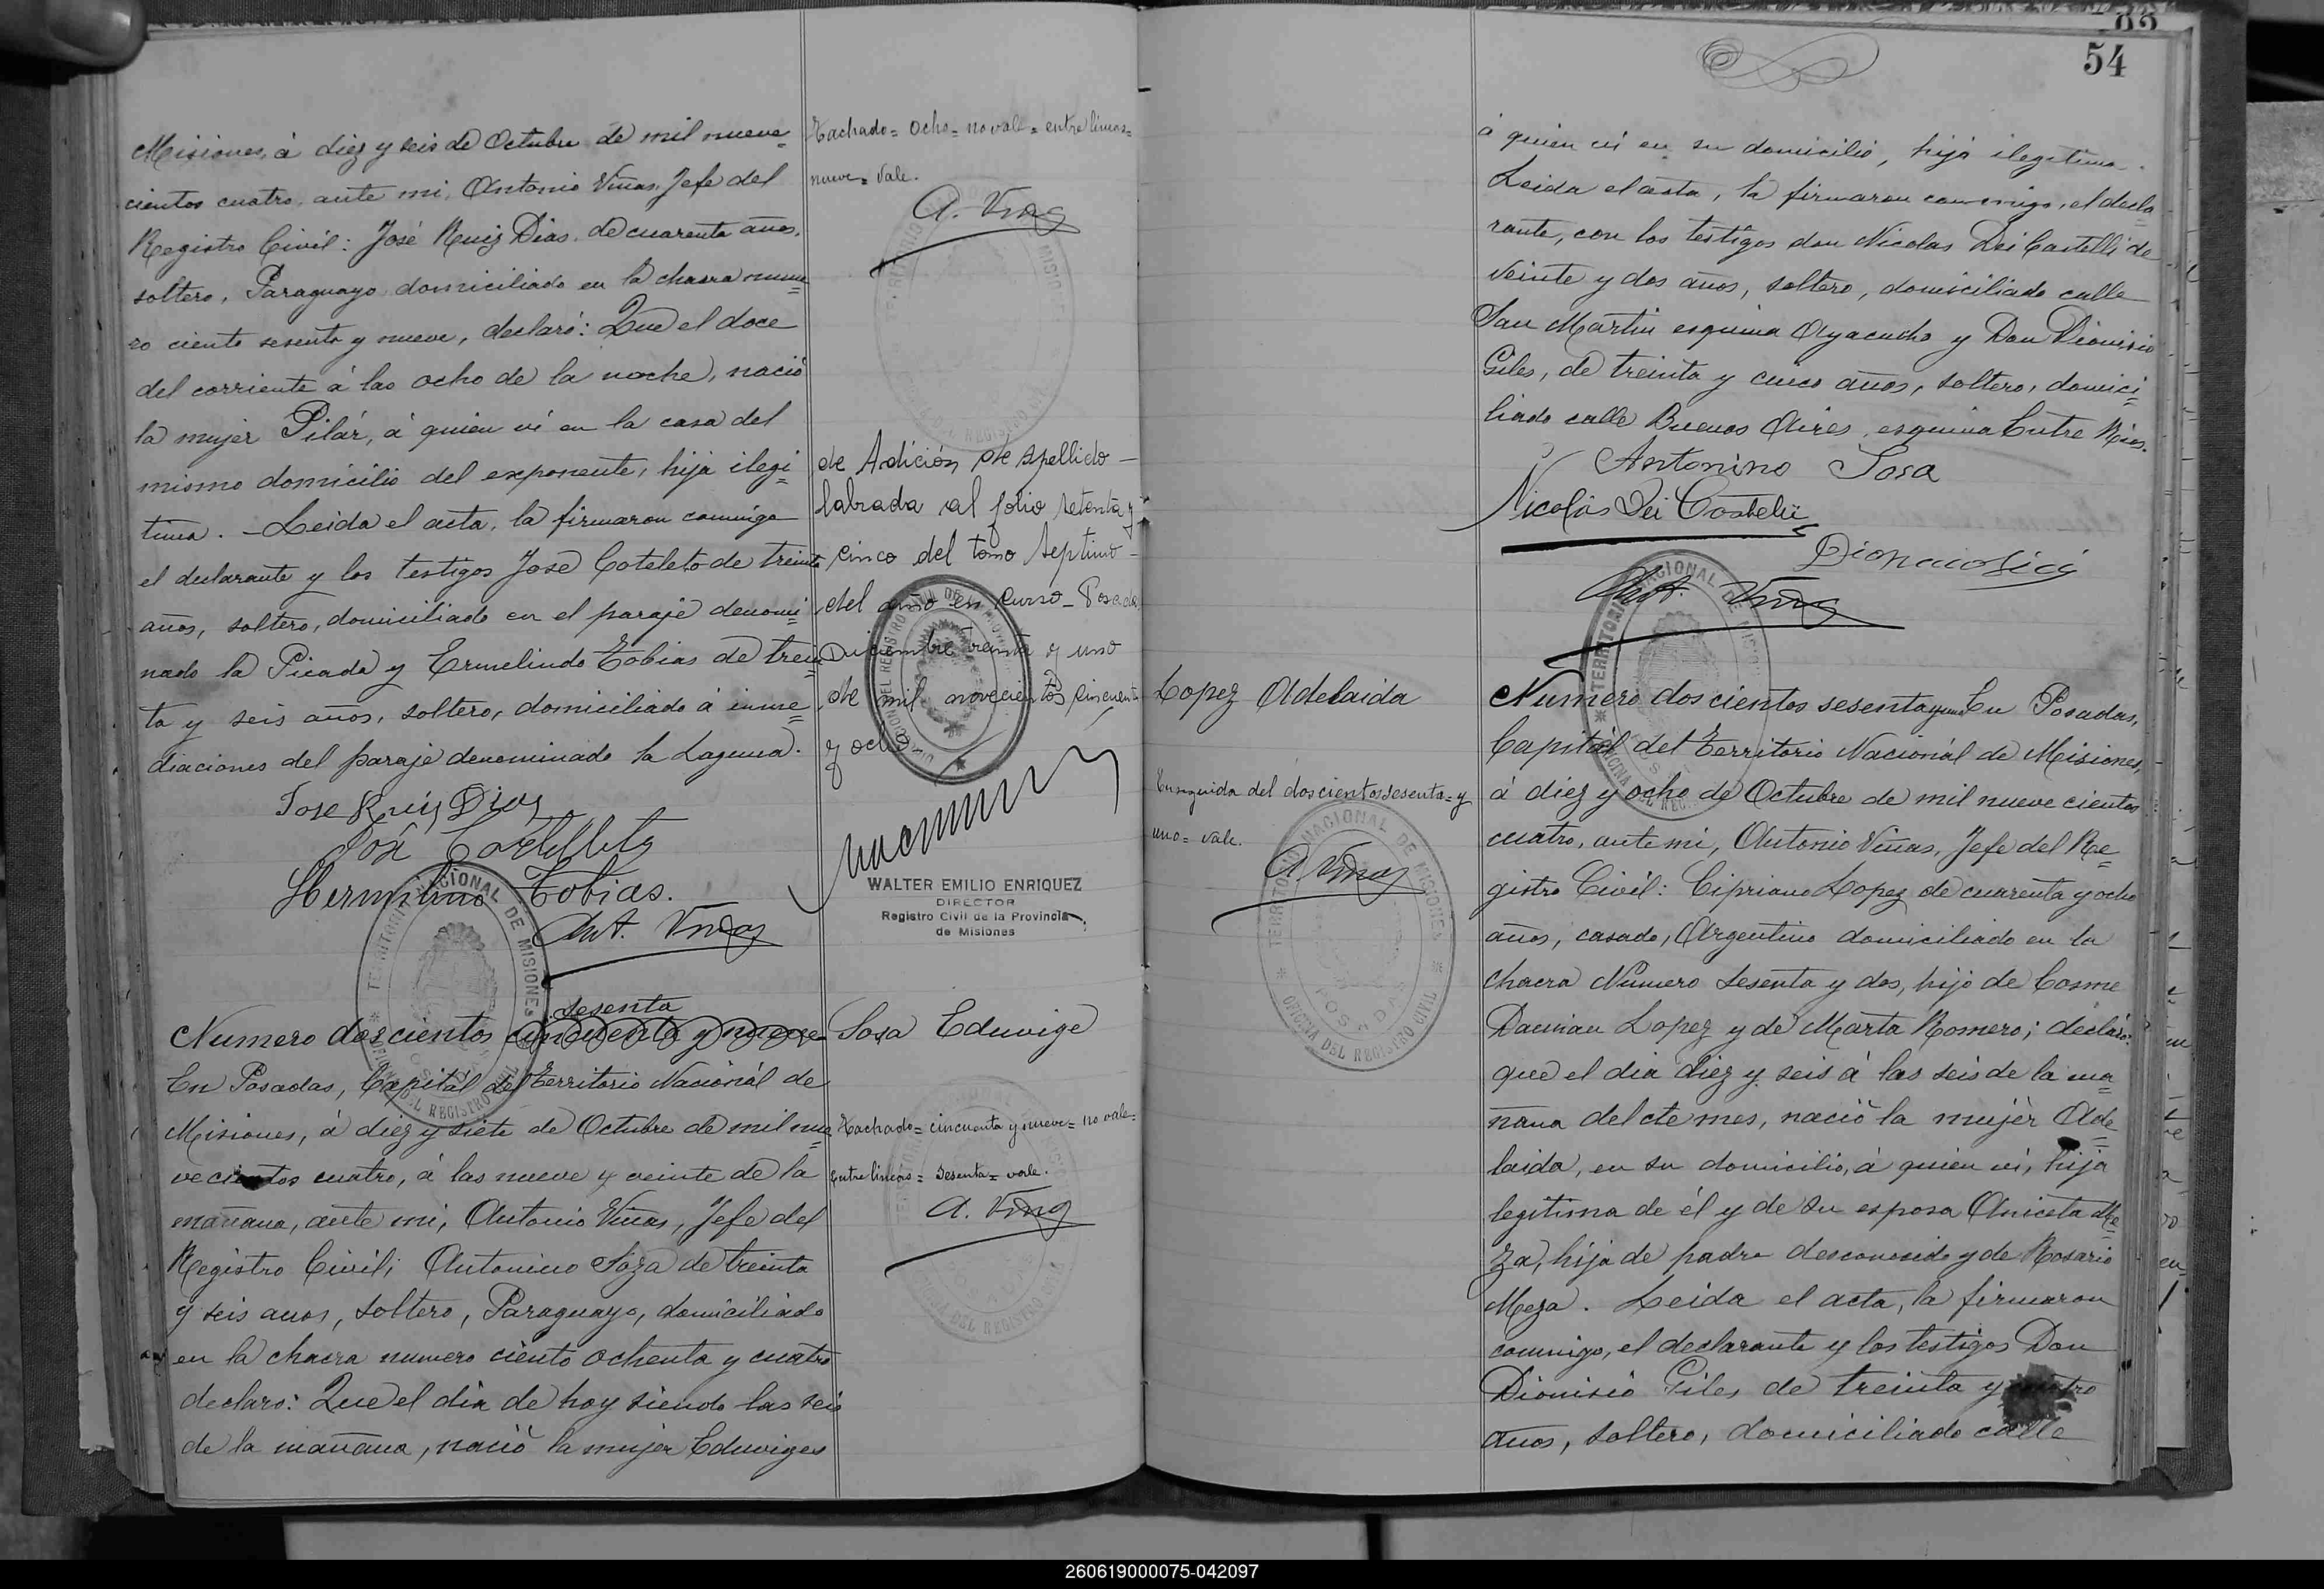 Misiones, á diez y seis de Octubre de mil nueve=
cientos cuatro, ante mi, Antonio Viñas, Jefe del
Registro Civil: José Ruiz Dias, de cuarenta años,
soltero, Paraguayo domiciliado en la chacra nume=
ro ciento sesenta y nueve, declaró: Que el doce
del corriente á las ocho de la noche, nació
la mujer Pilár, á quien ví en la casa del
mismo domicilio del exponente, hija ilegi=
tima. - Leida el acta, la firmaron conmigo
el declarante y los testigos José Coteleto de treinta
años, soltero, domiciliado en el paraje denomi=
nado la Picada y Ermelindo Tobias de trein=
ta y seis años, soltero, domiciliado á inme=
diaciones del paraje denominado la Laguna.
Jose Ruiz Dias
José
Hermilino Tobias.
Ant. Viñas
Tachado= Ocho= no vale= entre lineas=
nueve= Vale.
A. Viñas
de Adición de Apellido —
labrada al folio setenta y
cinco del tomo septimo —
del año en curso - Posadas
Diciembre treinta y uno
de mil novecientos cincuenta
y ocho -
WALTER EMILIO ENRIQUEZ
DIRECTOR
Registro Civil de la Provincia
de Misiones
sesenta
Numero doscientos cincuenta y nueve
En Posadas, Capital del Territorio Nacionál de
Misiones, á diez y siete de Octubre de mil nue=
vecientos cuatro, á las nueve y veinte de la
mañana, ante mi, Antonio Viñas, Jefe del
Registro Civil; Antonino Soza de treinta
y seis años, soltero, Paraguayo, domiciliado
en la chacra numero ciento ochenta y cuatro
declaro: Que el dia de hoy siendo las seis
de la mañana, nació la mujer Eduviges
Sosa Eduvige
Tachado= cincuenta y nueve= no vale=
Entre lineas= Sesenta= vale.
A. Viñas
54
á quien ví en su domicilio, hija ilegitima.
Leida el acta, la firmaron conmigo, el decla
rante, con los testigos don Nicolas Dei Castelli de
veinte y dos años, soltero, domiciliado calle
San Martin esquina Ayacucho y Don Dionisio
Giles, de treinta y cinco años, soltero, domici=
liado calle Buenos Aires esquina Entre Rios.
Antonino Sosa
Nicolás Dei Castelli
Ant. Viñas
TERRITORIO NACIONAL DE MISIONES
OFICINA DEL REGISTRO CIVIL
POSADAS
Lopez Adelaida
Enseguida del doscientos sesenta= y
uno= vale.
A. Viñas
Numero doscientos sesenta y uno En Posadas,
Capitál del Territorio Nacionál de Misiones,
á diez y ocho de Octubre de mil nuevecientos
cuatro, ante mi, Antonio Viñas, Jefe del Re=
gistro Civil: Cipriano Lopez de cuarenta y ocho
años, casado, Argentino domiciliado en la
chacra Número Sesenta y dos, hijo de Cosme
Damian Lopez y de Marta Romero; declaró:
que el dia diez y seis á las seis de la ma=
ñana del cte mes, nació la mujér Ade=
laida, en su domicilio, á quien ví, hija
legitima de él y de su esposa Aniceta Me=
za, hija de padre desconocido y de Rosario
Meza. Leida el acta, la firmaron
conmigo, el declarante y los testigos Don
Dionisio Giles de treinta y cuatro
años, soltero, domiciliado calle
260619000075-042097